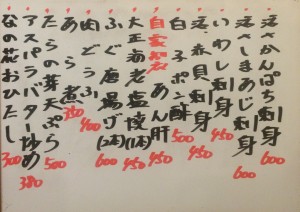 活〆かんぱち刺身 600
活〆しまあじ刺身 600
いわし刺身 450
活赤貝刺身 450
白子ポン酢 500
自家製 あん肝 450
大正海老塩焼(1本) 450
ふぐ唐揚げ(2本) 600
肉どうふ 400
あら煮 350
たらの芽天ぷら 500
アスパラバター炒め 380
なの花おひたし 300